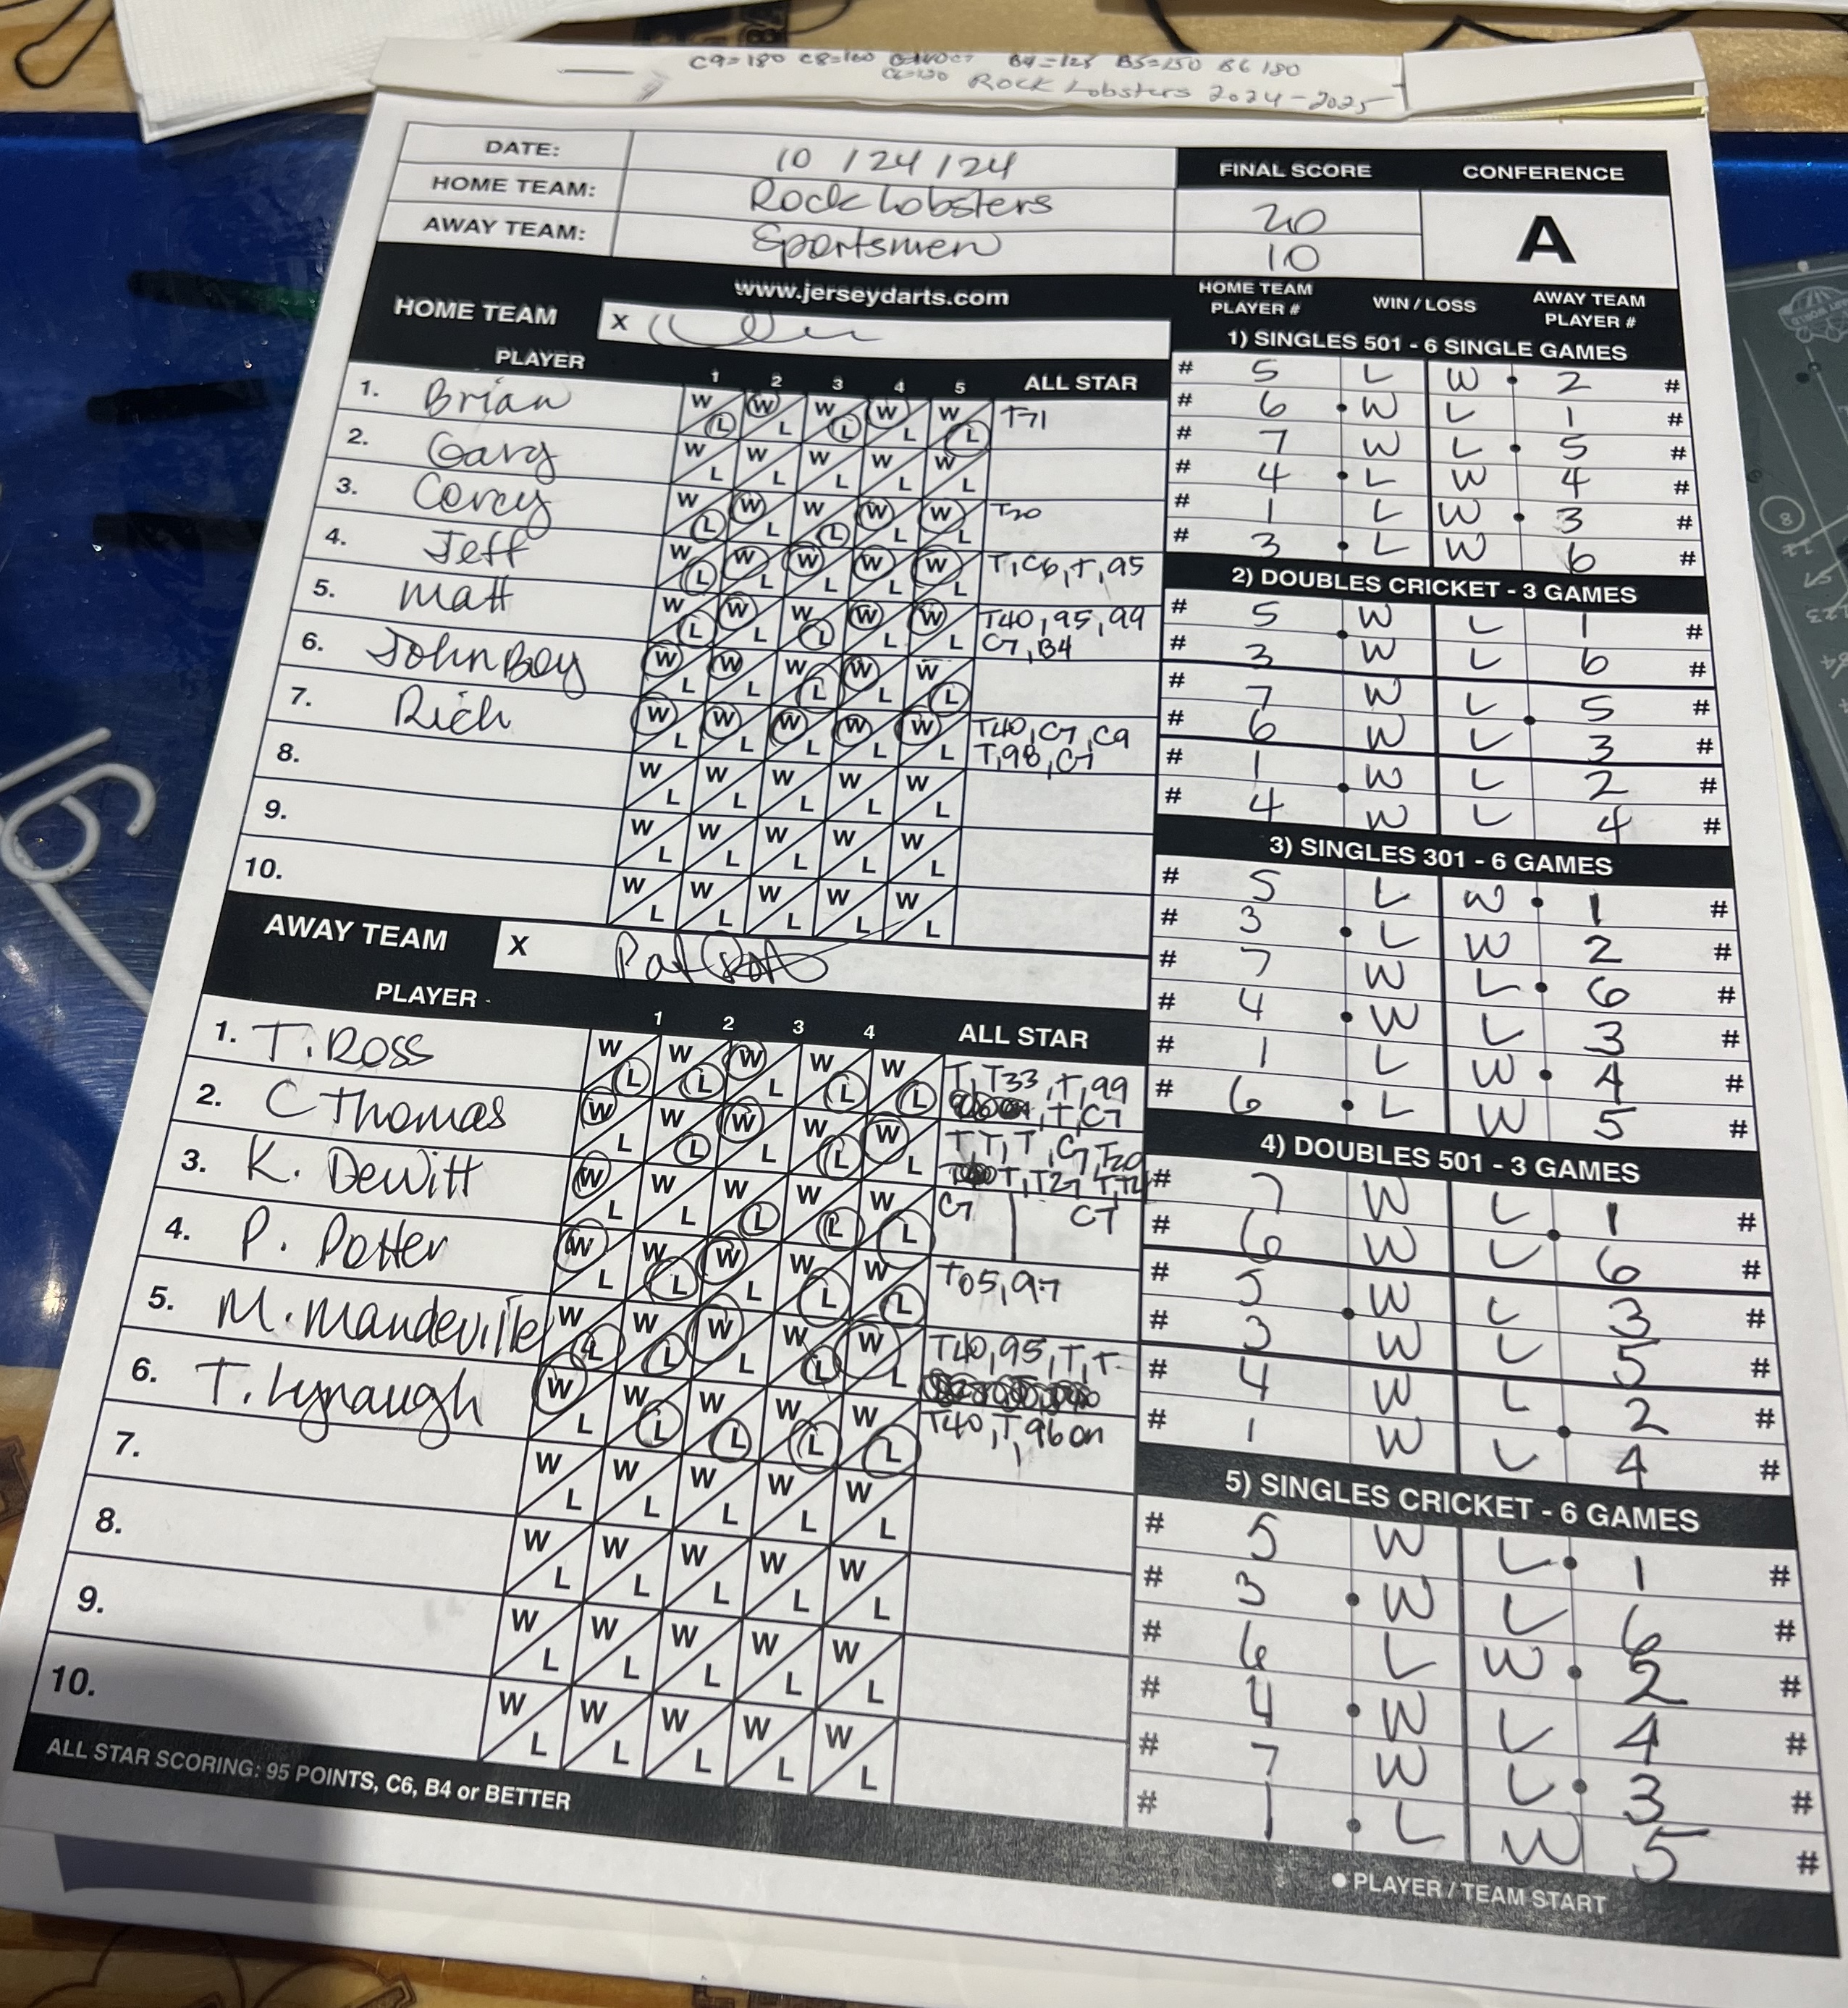 C9=180 C8=160 B4=125 B5=150 B6 180
Rock Lobsters 2024-2025
DATE: 10/24/24
HOME TEAM: Rock Lobsters
AWAY TEAM: Sportsmen
FINAL SCORE CONFERENCE
20
10
A
www.jerseydarts.com
HOME TEAM X
PLAYER 1 2 3 4 5 ALL STAR
1. Brian W L W L W L W L W L T71
2. Gary W L W L W L W L W L
3. Corey W L W L W L W L W L T20
4. Jeff W L W L W L W L W L T, C6, T, 95
5. Matt W L W L W L W L W L T40, 95, 99
C7, B4
6. JohnBoy W L W L W L W L W L
7. Rich W L W L W L W L W L T40, C7, C9
T, 98, C7
8. W L W L W L W L W L
9. W L W L W L W L W L
10. W L W L W L W L W L
AWAY TEAM X
PLAYER 1 2 3 4 ALL STAR
1. T. Ross W L W L W L W L W L T, T33, T, 99
, T, C7
2. C Thomas W L W L W L W L W L T, T, T, C7, T20
T, T27, T,
3. K. DeWitt W L W L W L W L W L C7 C7
4. P. Potter W L W L W L W L W L T05, 97
5. M. Mandeville W L W L W L W L W L T40, 95, T, T
6. T. Lynaugh W L W L W L W L W L T40, T, 96 on
7. W L W L W L W L W L
8. W L W L W L W L W L
9. W L W L W L W L W L
10. W L W L W L W L W L
ALL STAR SCORING: 95 POINTS, C6, B4 or BETTER
HOME TEAM PLAYER # WIN / LOSS AWAY TEAM PLAYER #
1) SINGLES 501 - 6 SINGLE GAMES
# 5 L W • 2 #
# 6 • W L 1 #
# 7 W L • 5 #
# 4 • L W 4 #
# 1 L W • 3 #
# 3 • L W 6 #
2) DOUBLES CRICKET - 3 GAMES
# 5 W L 1 #
# 3 W L 6 #
# 7 W L 5 #
# 6 W L 3 #
# 1 W L 2 #
# 4 W L 4 #
3) SINGLES 301 - 6 GAMES
# 5 L W • 1 #
# 3 • L W 2 #
# 7 W L • 6 #
# 4 • W L 3 #
# 1 L W • 4 #
# 6 • L W 5 #
4) DOUBLES 501 - 3 GAMES
# 7 W L 1 #
# 6 W L 6 #
# 5 W L 3 #
# 3 W L 5 #
# 4 W L 2 #
# 1 W L 4 #
5) SINGLES CRICKET - 6 GAMES
# 5 W L • 1 #
# 3 • W L 6 #
# 6 L W • 2 #
# 4 • W L 4 #
# 7 W L • 3 #
# 1 • L W 5 #
● PLAYER / TEAM START